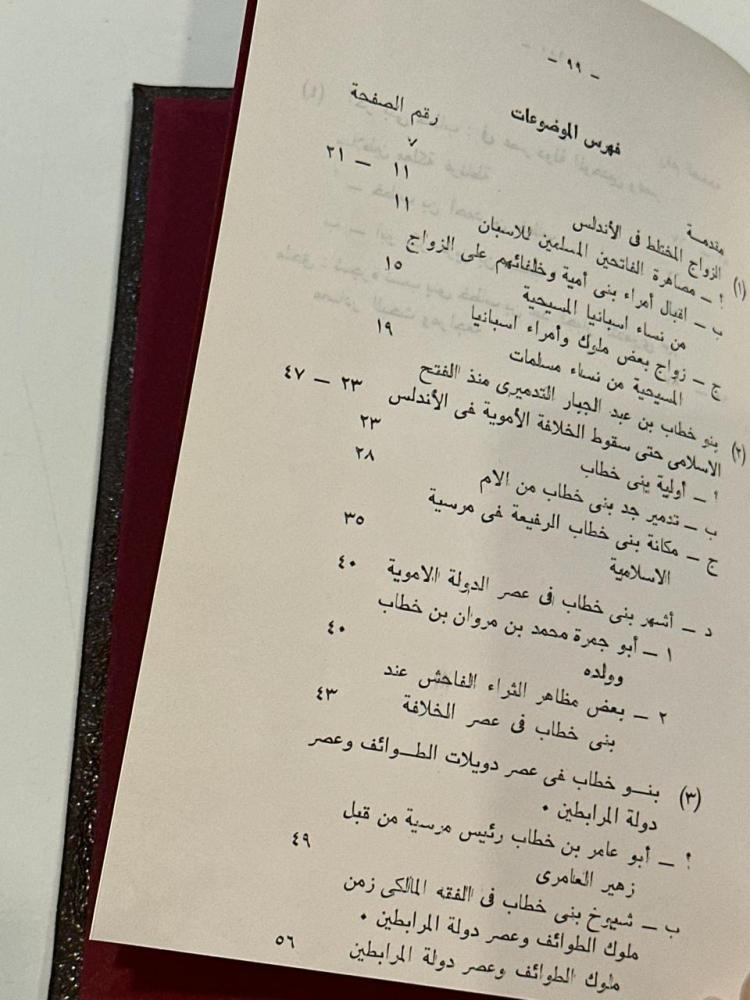 — ٩٩ —
فهرس الموضوعات رقم الصفحة
مقدمــة ٧
(١) الزواج المختلط فى الأندلس ١١ — ٢١
أ — مصاهرة الفاتحين المسلمين للاسبان ١١
ب — اقبال أمراء بنى أمية وخلفائهم على الزواج
من نساء اسبانيا المسيحية ١٥
ج — زواج بعض ملوك وأمراء اسبانيا
المسيحية من نساء مسلمات ١٩
(٢) بنو خطاب بن عبد الجبار التدميرى منذ الفتح
الاسلامى حتى سقوط الخلافة الأموية فى الأندلس ٢٣ — ٤٧
أ — أولية بنى خطاب ٢٣
ب — تدمير جد بنى خطاب من الام ٢٨
ج — مكانة بنى خطاب الرفيعة فى مرسية
الاسلامية ٣٥
د — أشهر بنى خطاب فى عصر الدولة الاموية ٤٠
١ — أبو جمرة محمد بن مروان بن خطاب
وولده ٤٠
٢ — بعض مظاهر الثراء الفاحش عند
بنى خطاب فى عصر الخلافة ٤٣
(٣) بنــو خطاب فى عصر دويلات الطــوائف وعصر
دولة المرابطين .
أ — أبو عامر بن خطاب رئيس مرسية من قبل
زهير العامرى ٤٩
ب — شيوخ بنى خطاب فى الفقه المالكى زمن
ملوك الطوائف وعصر دولة المرابطين .
ملوك الطوائف وعصر دولة المرابطين ٥٦